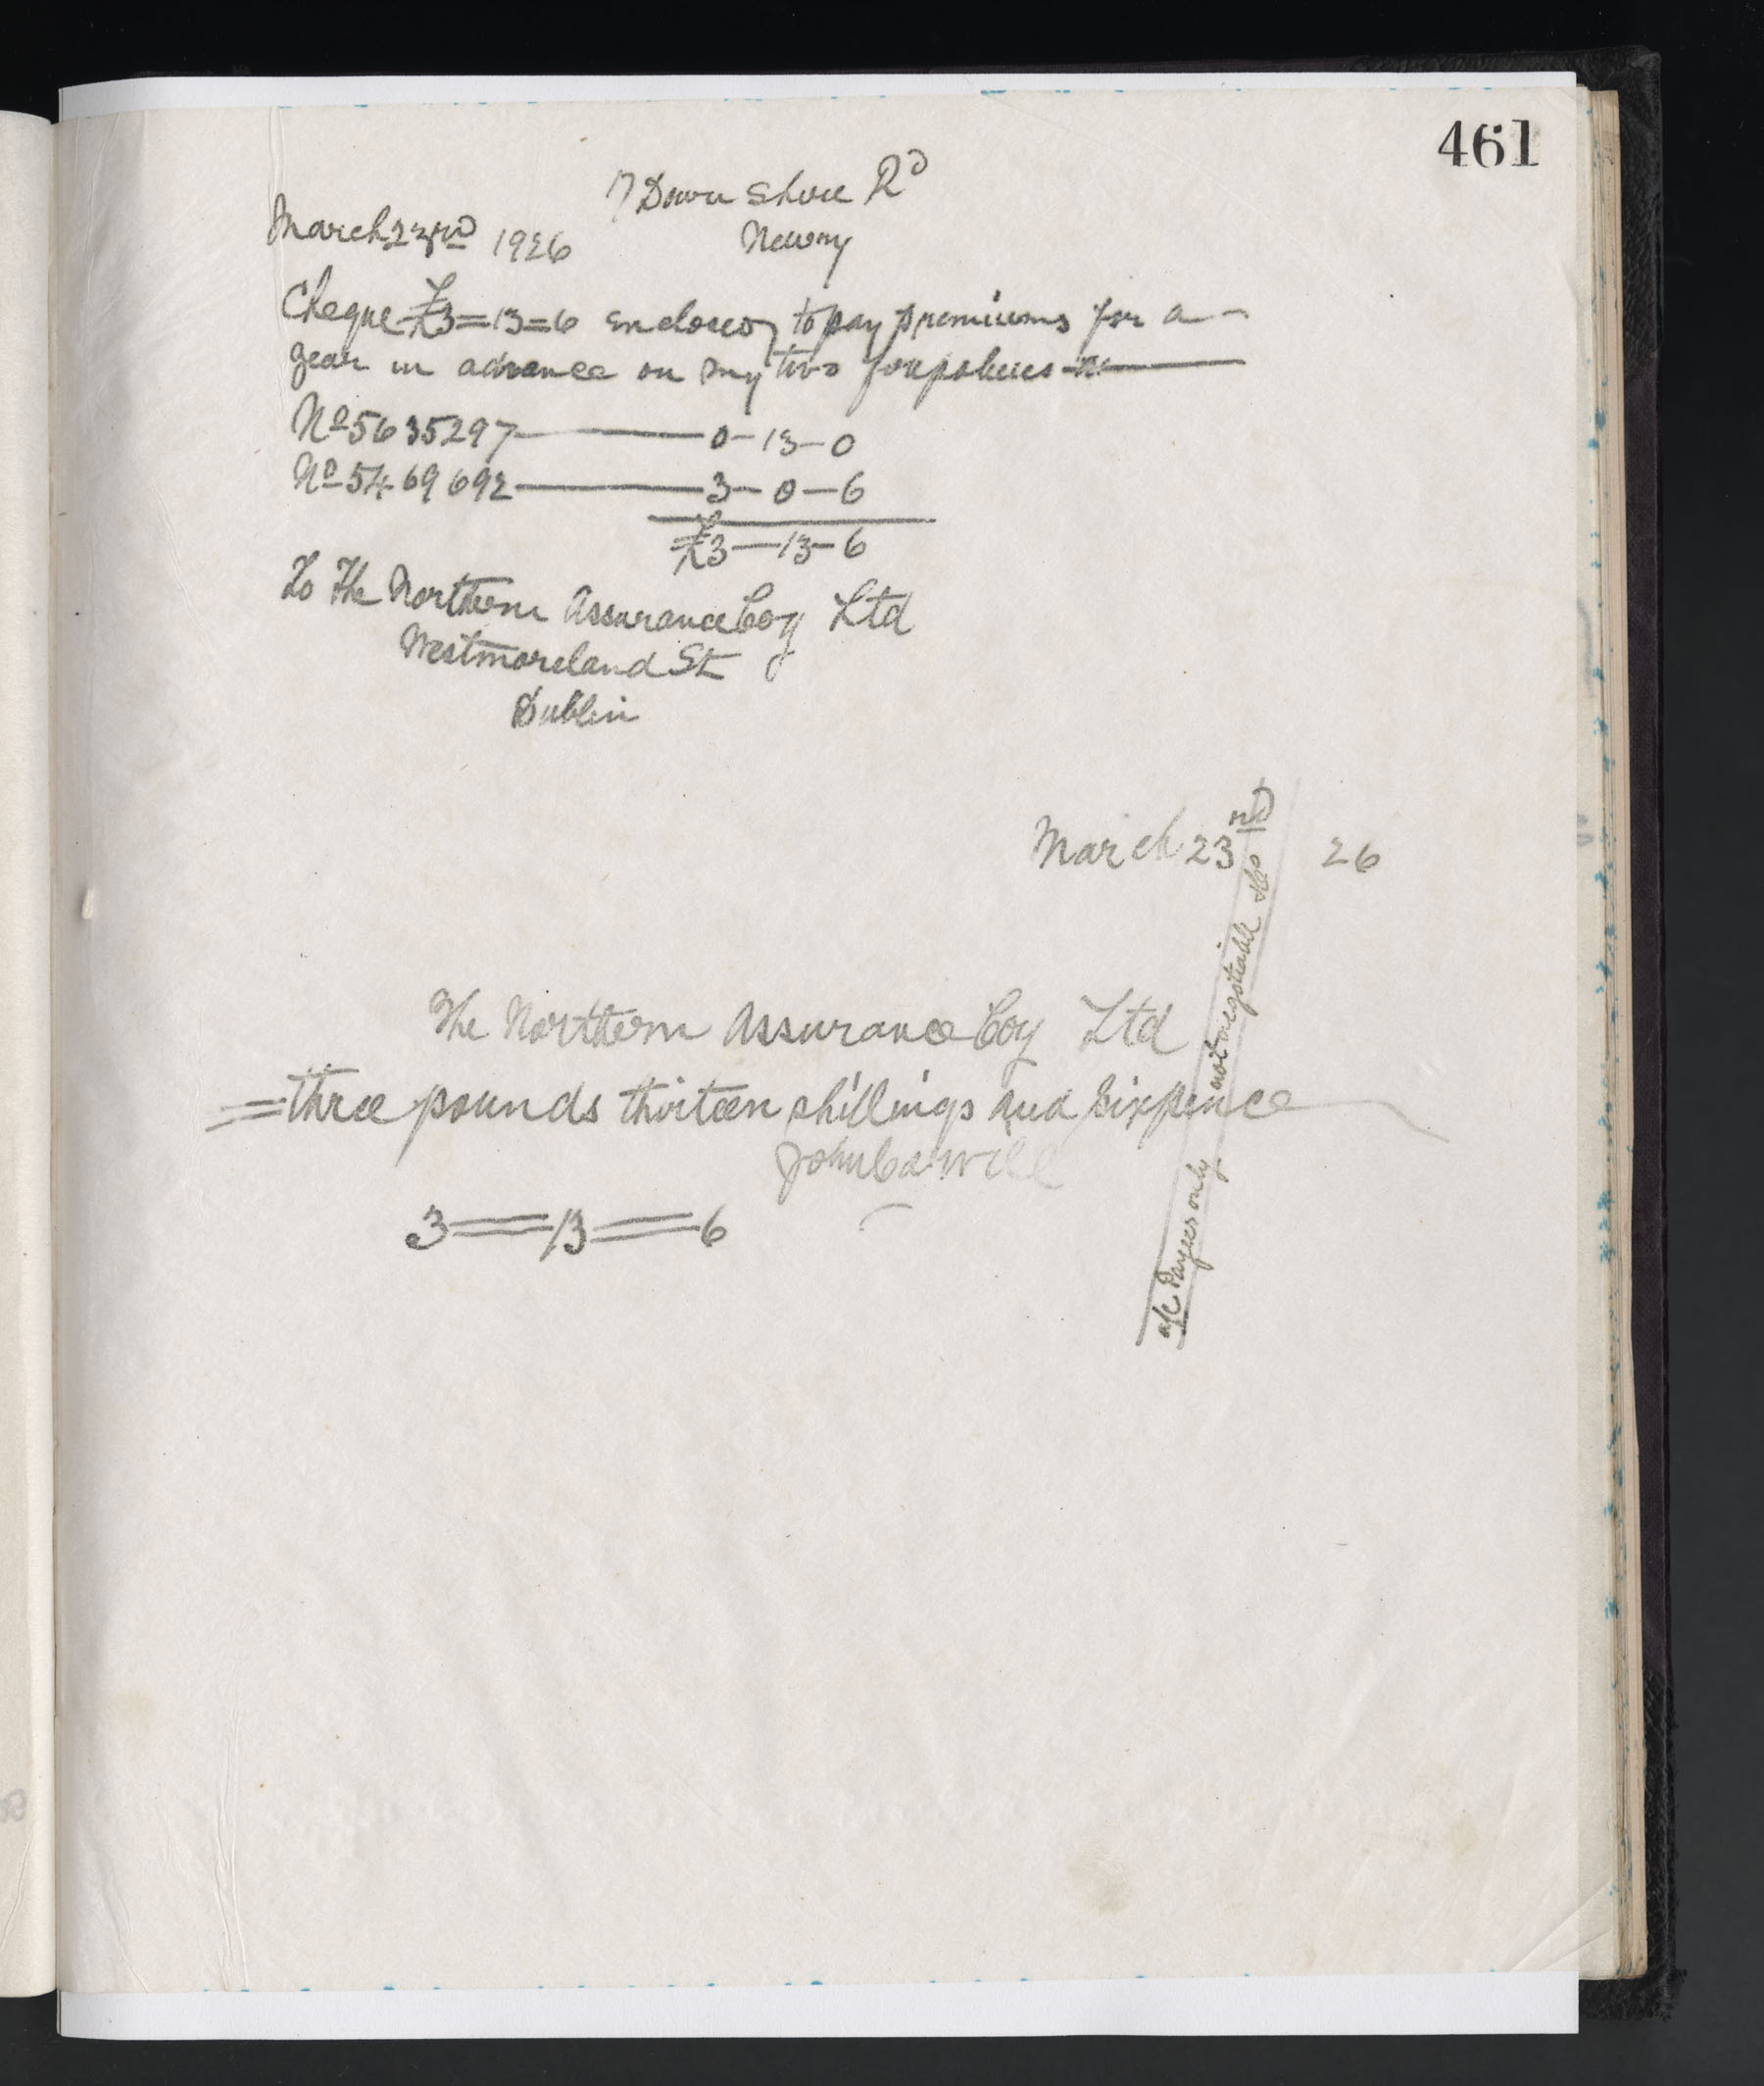 461
17 Downshire Rd
March 23rd 1926 Newry
Cheque £3=13=6 enclosed to pay premiums for a
year in advance on my two policies
No 5635297 — 0-13-0
No 5469692 — 3-0-6
£3-13-6
To The Northern Assurance Coy Ltd
Westmoreland St
Dublin
March 23rd 26
The Northern Assurance Coy Ltd
=three pounds thirteen shillings and sixpence
3=13=6
a/c Payees only not negotiable &Co